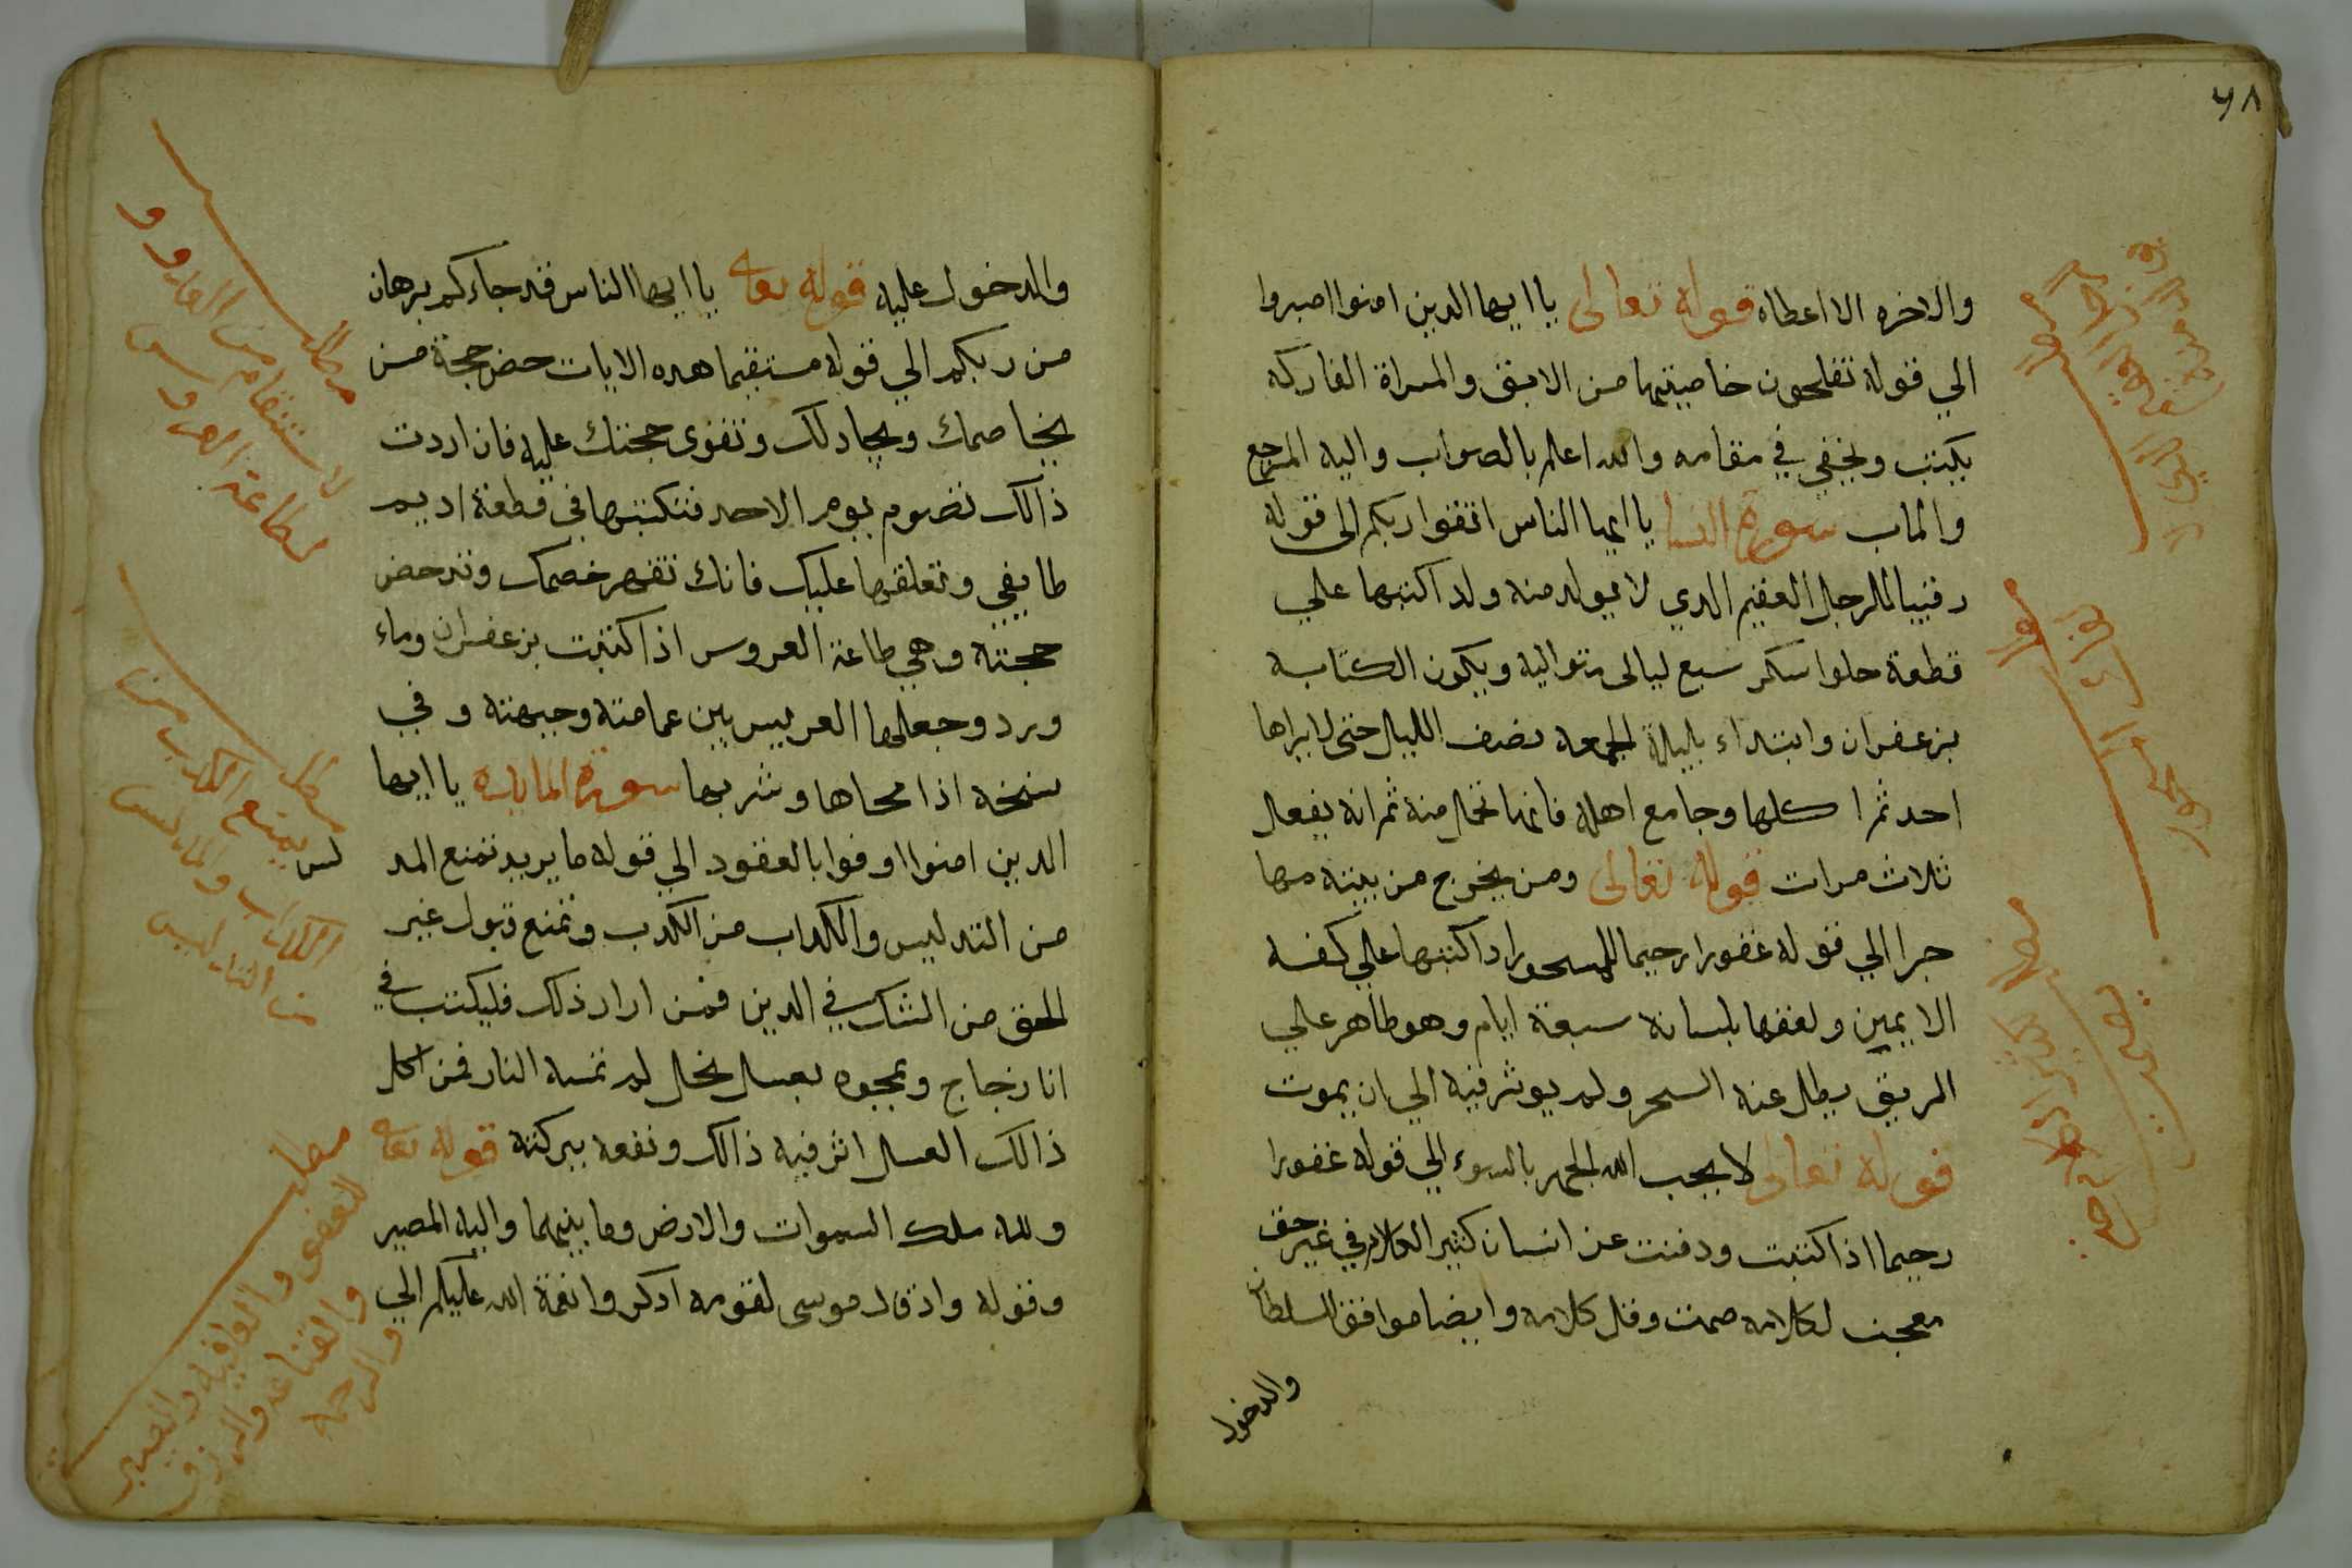 ٧٨
والاخره الا اعطاه قوله تعالى يا ايها الدين امنوا اصبروا
الي قوله تفلحون خاصيتها من الابق والمراة الفاركه
يكتب ويخفي في مقامه والله اعلم بالصواب واليه المرجع
والماب سورة النسا يا ايها الناس اتقوا ربكم الى قوله
رقيبا للرجل العقيم الدي لا يولد منه ولد اكتبها علي
قطعة حلوا سكر سبع ليالى متواليه ويكون الكتابه
بزعفران وابتداء بليلة الجمعه نصف الليل حتى لا يراها
احد ثم اكلها وجامع اهله فانها تحمل منه ثم انه يفعل
ثلاث مرات قوله تعالى ومن يخرج من بيته مها
جرا الي قوله غفورا رحيما للمسحور ادا اكتبها علي كفه
الايمين ولعقها بلسانه سبعة ايام وهو طاهر علي
الريق يطل عنه السحر ولم يوثر فيه الي ان يموت
قوله تعالى لا يحب الله الجهر بالسوء الي قوله غفورا
رحيما اذا كتبت ودفنت عن انسان كثير الكلام في غير حق
معجب لكلامه صمت وقل كلامه وايضا موافق السلطان
والدخول
والدخول عليه قوله تعا يا ايها الناس قد جاءكم برهان
من ربكم الي قوله مستقيما هده الايات حض حجة من
يخاصمك ويجادلك وتقوى حجتك عليه فان اردت
ذالك تصوم يوم الاحد فتكتبها فى قطعة اديم
طايفي وتعلقها عليك فانك تقهر خصمك وتدحض
حجته وهي طاعة العروس اذا كتبت بزعفران وماء
ورد وجعلها العريس بين عمامته وجبهته وفي
نسخه اذا محاها وشربها سورة المايده يا ايها
الدين امنوا اوفوا بالعقود الي قوله ما يريد تمنع المد
لس
من التدليس والكداب من الكدب وتمنع قبول غير
الحق من الشك في الدين فمن اراد ذلك فليكتب في
انا زجاج ويمجوه بعسل نحل لم تمسه النار فمن اكل
ذالك العسل اثر فيه ذالك ونفعه ببركته قوله تعا
ولله ملك السموات والارض وما بينهما واليه المصير
وقوله واذ قال موسى لقومه ادكروا نعمة الله عليكم الي
مطلب
طاعة العروس
مطلب
يمنع الكدب من
الكداب والمدلس
من التدليس
مطلب
والعافيه والصبر
والقناعه والرزق
والرحمه